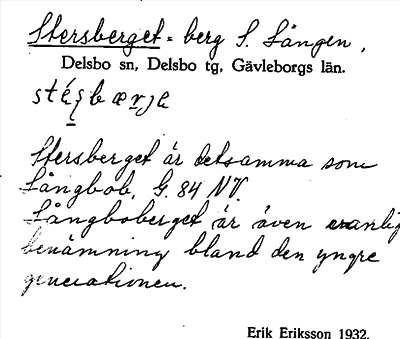 Stersberget = berg S. Lången,
Delsbo sn, Delsbo tg, Gävleborgs län.
Stersberget är detsamma som
Långbob, G. 84 NV.
Långboberget är även vanlig
benämning bland den yngre
generationen.
Erik Eriksson 1932.